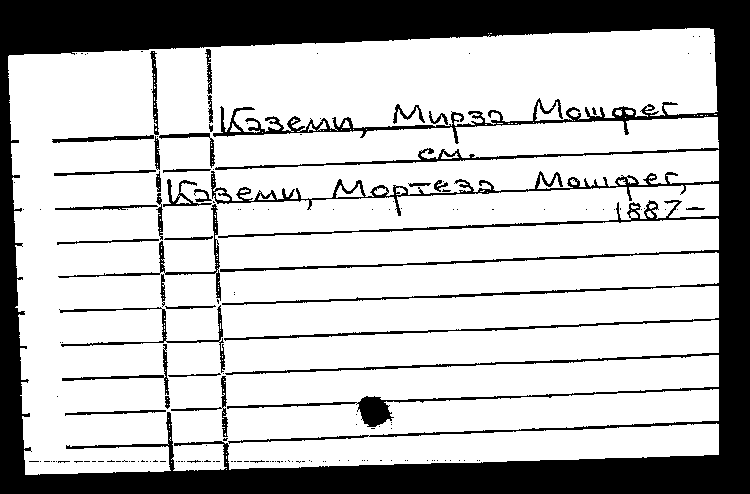 Каземи, Мирза Мошфег
см.
Каземи, Мортеза Мошфег,
1887-